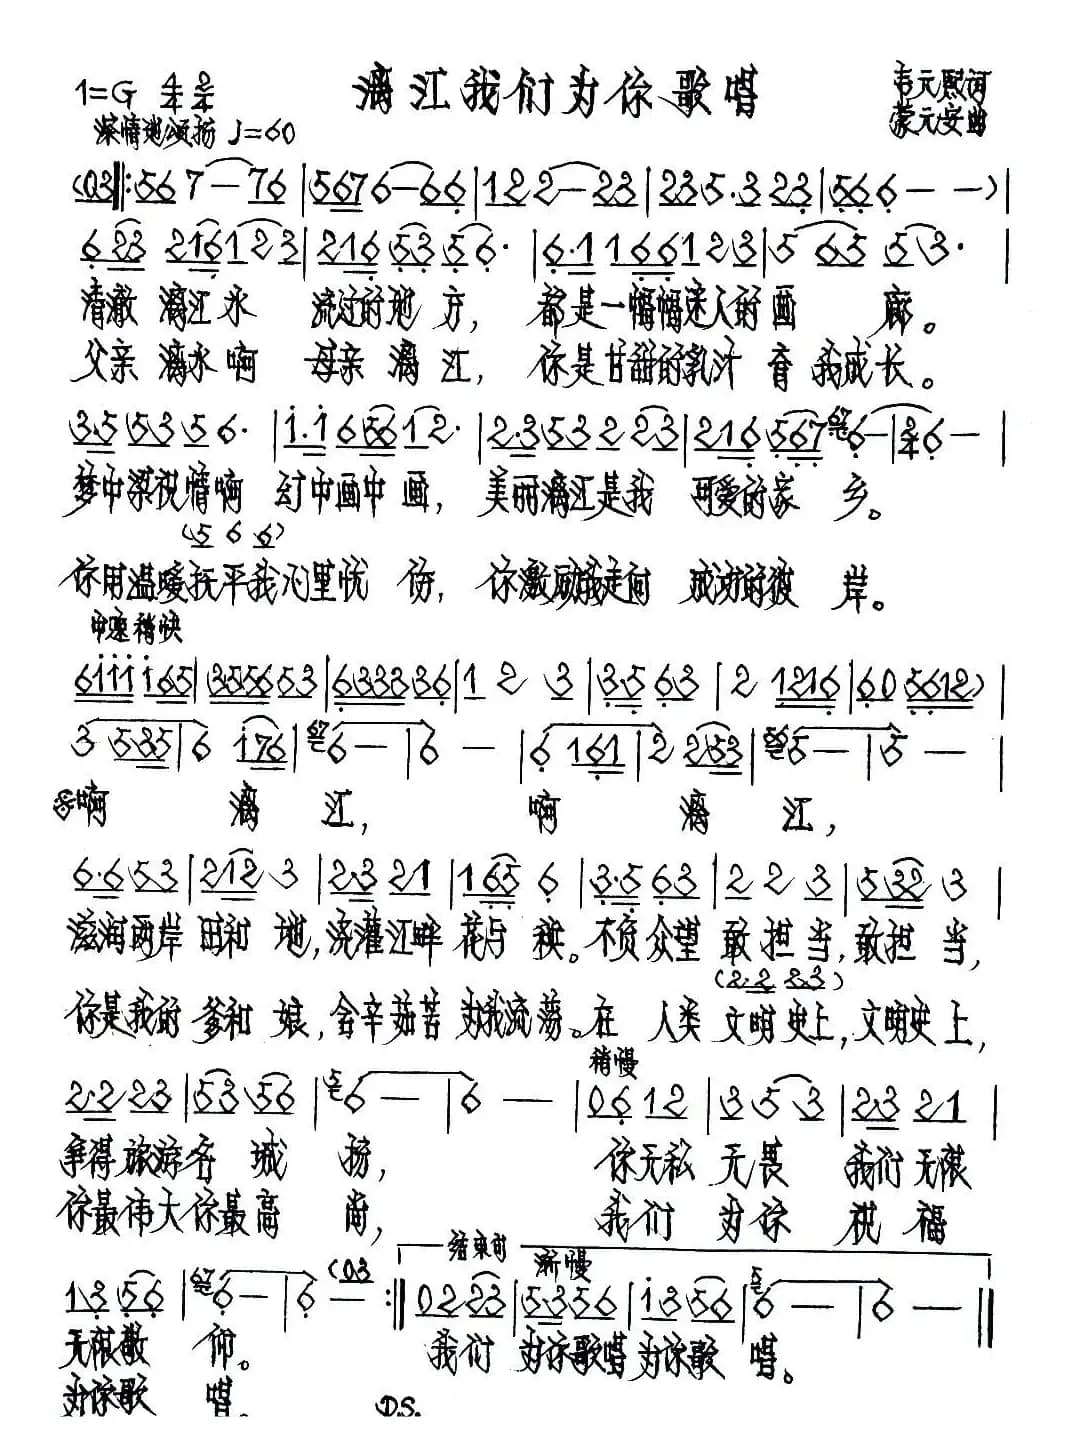 漓江我们为你歌唱
1=G 4/4 2/4
韦元熙词
深情地颂扬 ♩=60
蒙元安曲
(03‖:567—76|5676—66|122—23|235·323|566——)|
623 2161 23|2165356·|6·1166123|56553·|
清澈漓江水 流过的地方, 都是一幅幅迷人的画廊。
父亲漓水啊 母亲漓江, 你是甘甜的乳汁育我成长。
3·55356·|1·165612·|2·353223|216567 676—|2/4 6—|
梦中深祝情啊 幻中画中画, 美丽漓江是我可爱的家乡。
(5 6 6)
你用温暖抚平我心里忧伤, 你激励我走向成功的彼岸。
中速稍快
6111165|355653|6333336|12 3|3·563|2 1216|605612)|
3535|6 176|676—|6—|6 161|2 253|565—|5—|
啊 漓江, 啊 漓江,
6·653|212 3|2·321|165 6|3·563|22 3|532 3|
滋润两岸田和地, 浇灌江畔花与秧。不负众望敢担当, 敢担当,
(2·2 23)
你是我的爹和娘, 含辛茹苦为我流淌。在人类文明史上, 文明史上,
2·223|5356|56—|6—|0612|353|2·321|
稍慢
争得旅游名城扬, 你无私无畏 我们无限
你最伟大你最高尚, 我们为你祝福
结束句
渐慢
1356|676—|6—(03:‖02223|5356|1356|56—|6—‖
无限敬仰。 我们为你歌唱为你歌唱。
为你歌唱。 D.S.